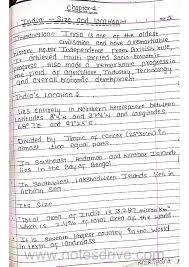 Chapter-1
India - Size and location
Introduction: India is one of the oldest
civilisation and have a remarkable
history. After Independence from British rule,
it achieved multi-faceted socio-economic
progress. Also made a remarkable progress in
the field of agriculture, Industry, Technology
and overall economic development.
India's location:
Lies entirely in Northern hemisphere between
latitudes 8°4'N and 37°6'N and longitudes
68°7'E and 97°25'E.
Divided by Tropic of Cancer (23°30'N) in
almost two equal parts.
In Southeast Andaman and Nicobar Islands
lies in the Bay of Bengal
In Southwest Lakshadweep Islands lies in
Arabian Sea.
Its Size
Total area of India is 3.287 million km²
which is 2.4% of total area of the world.
It is seventh largest country in the world
in terms of landmass
www.notesdrive.com